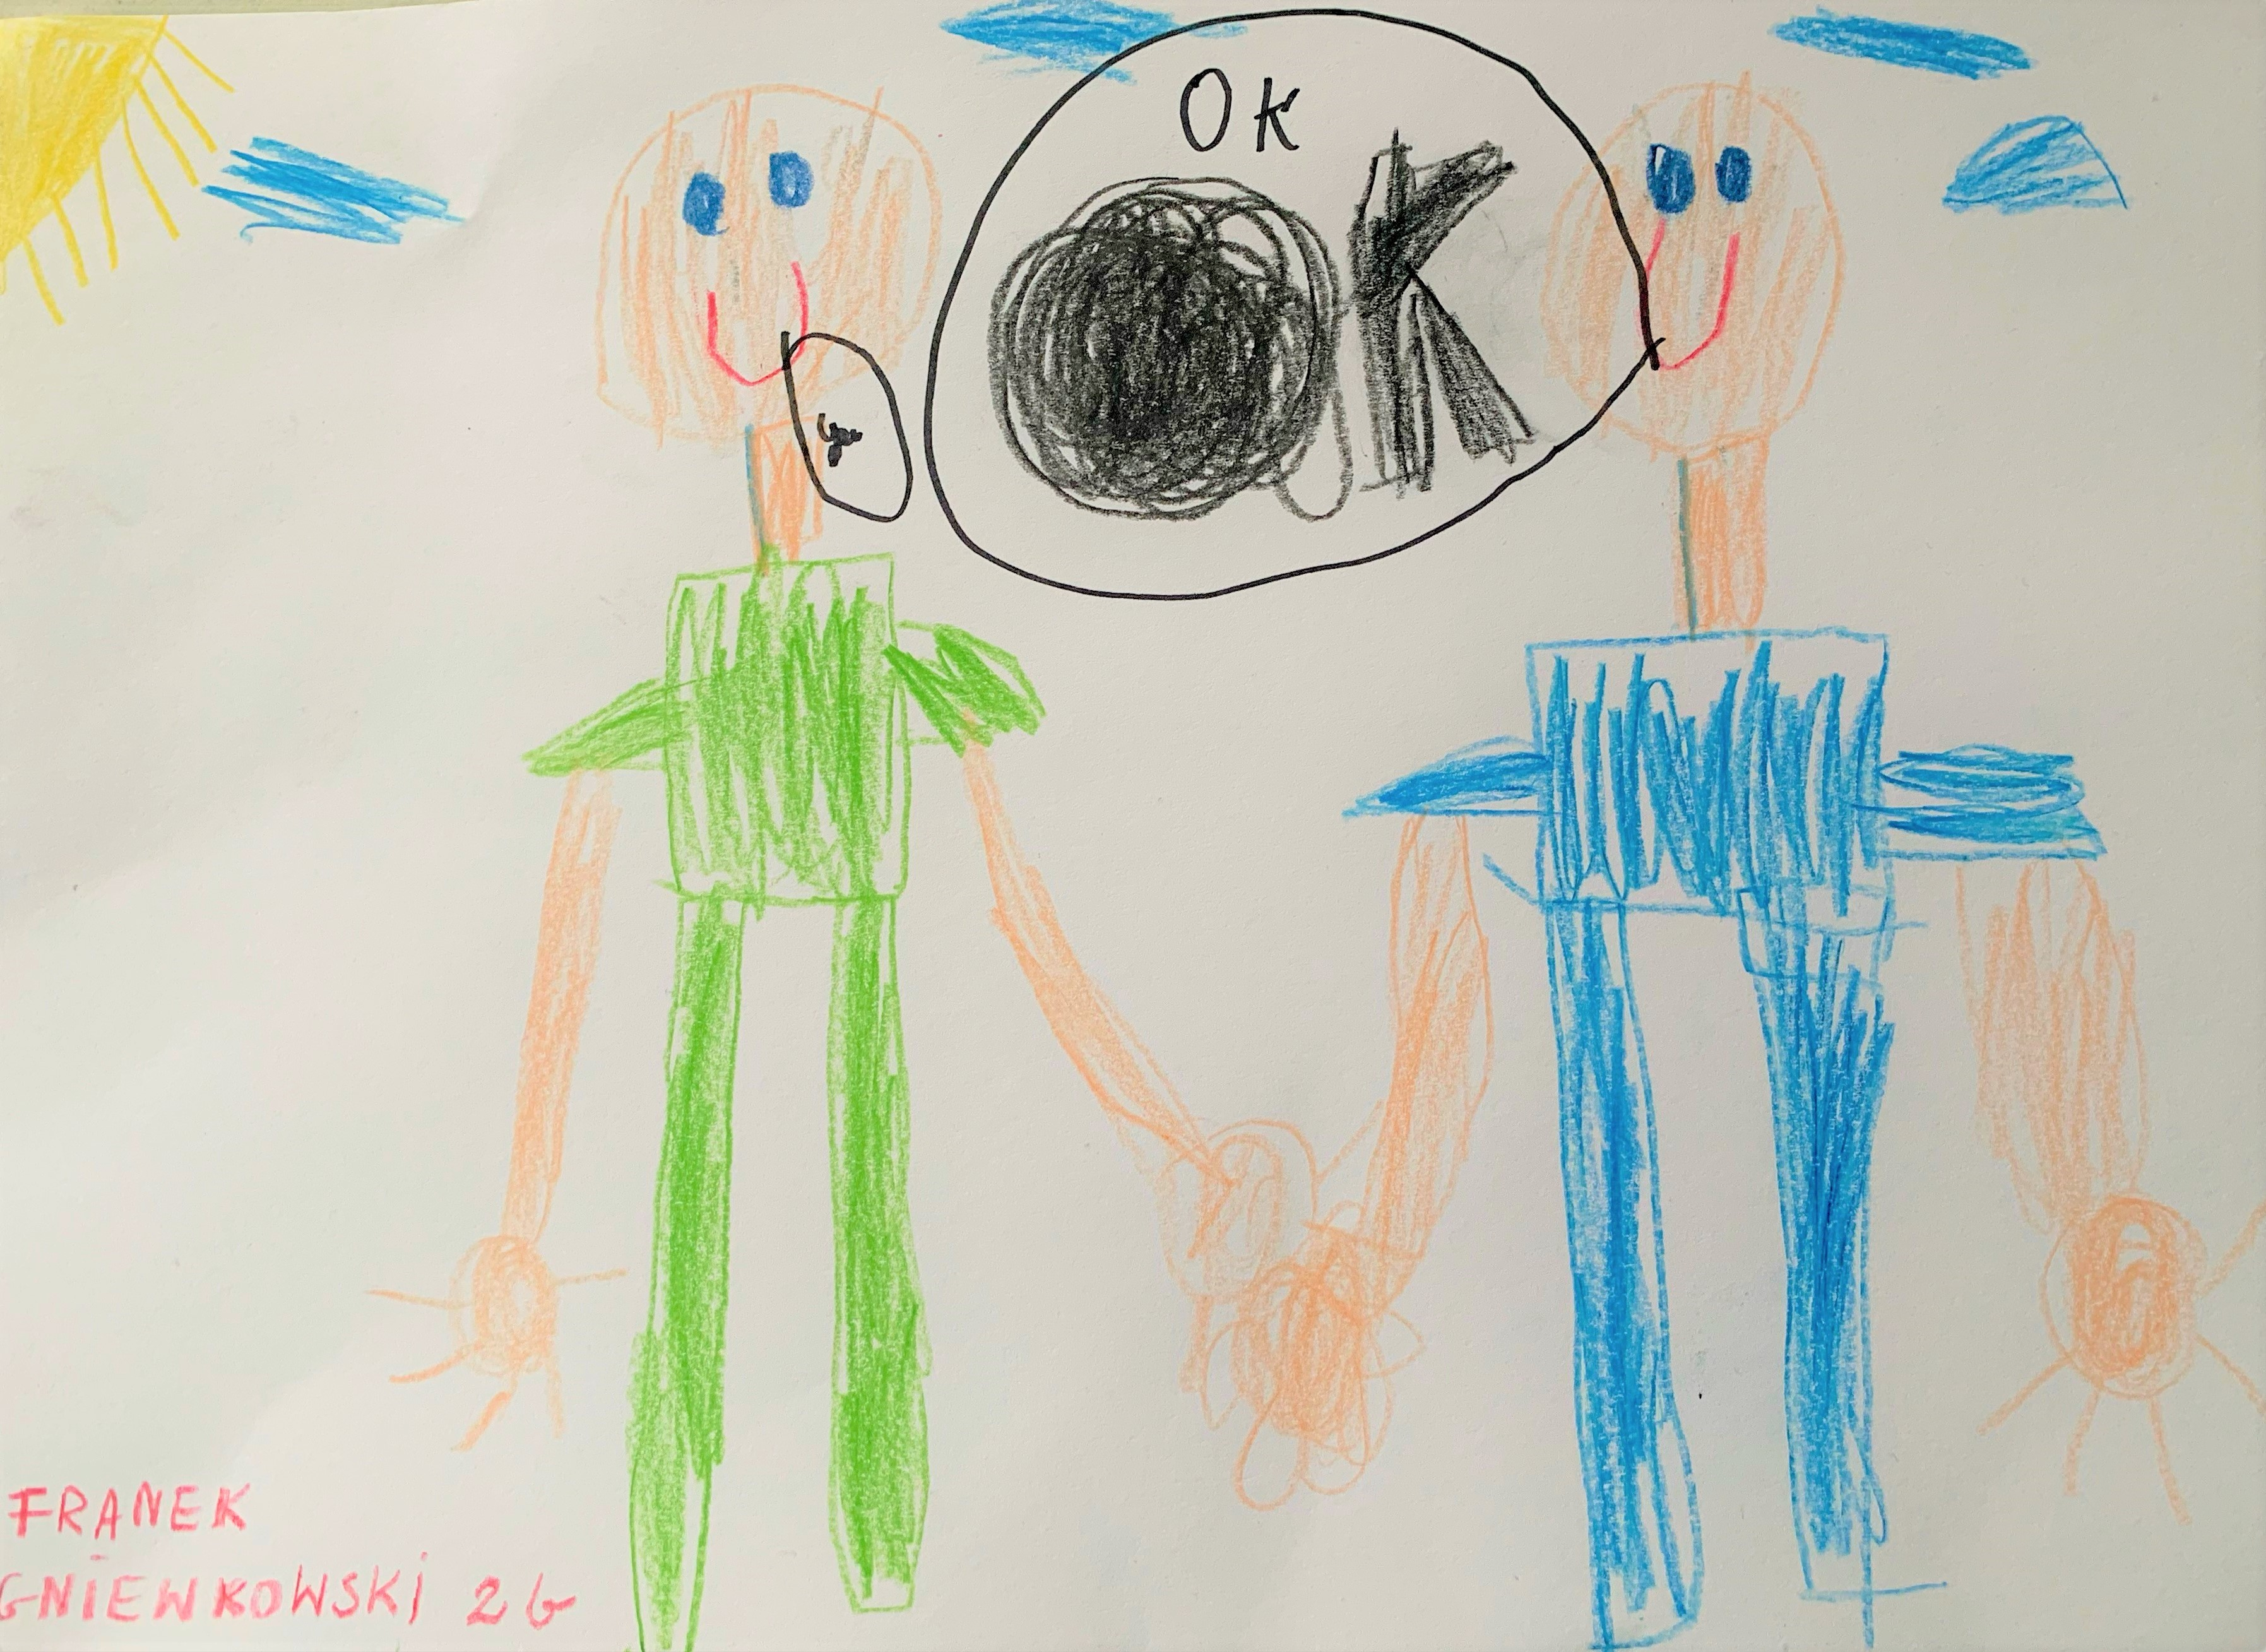 OK
OK
FRANEK
GNIEWKOWSKI 2G